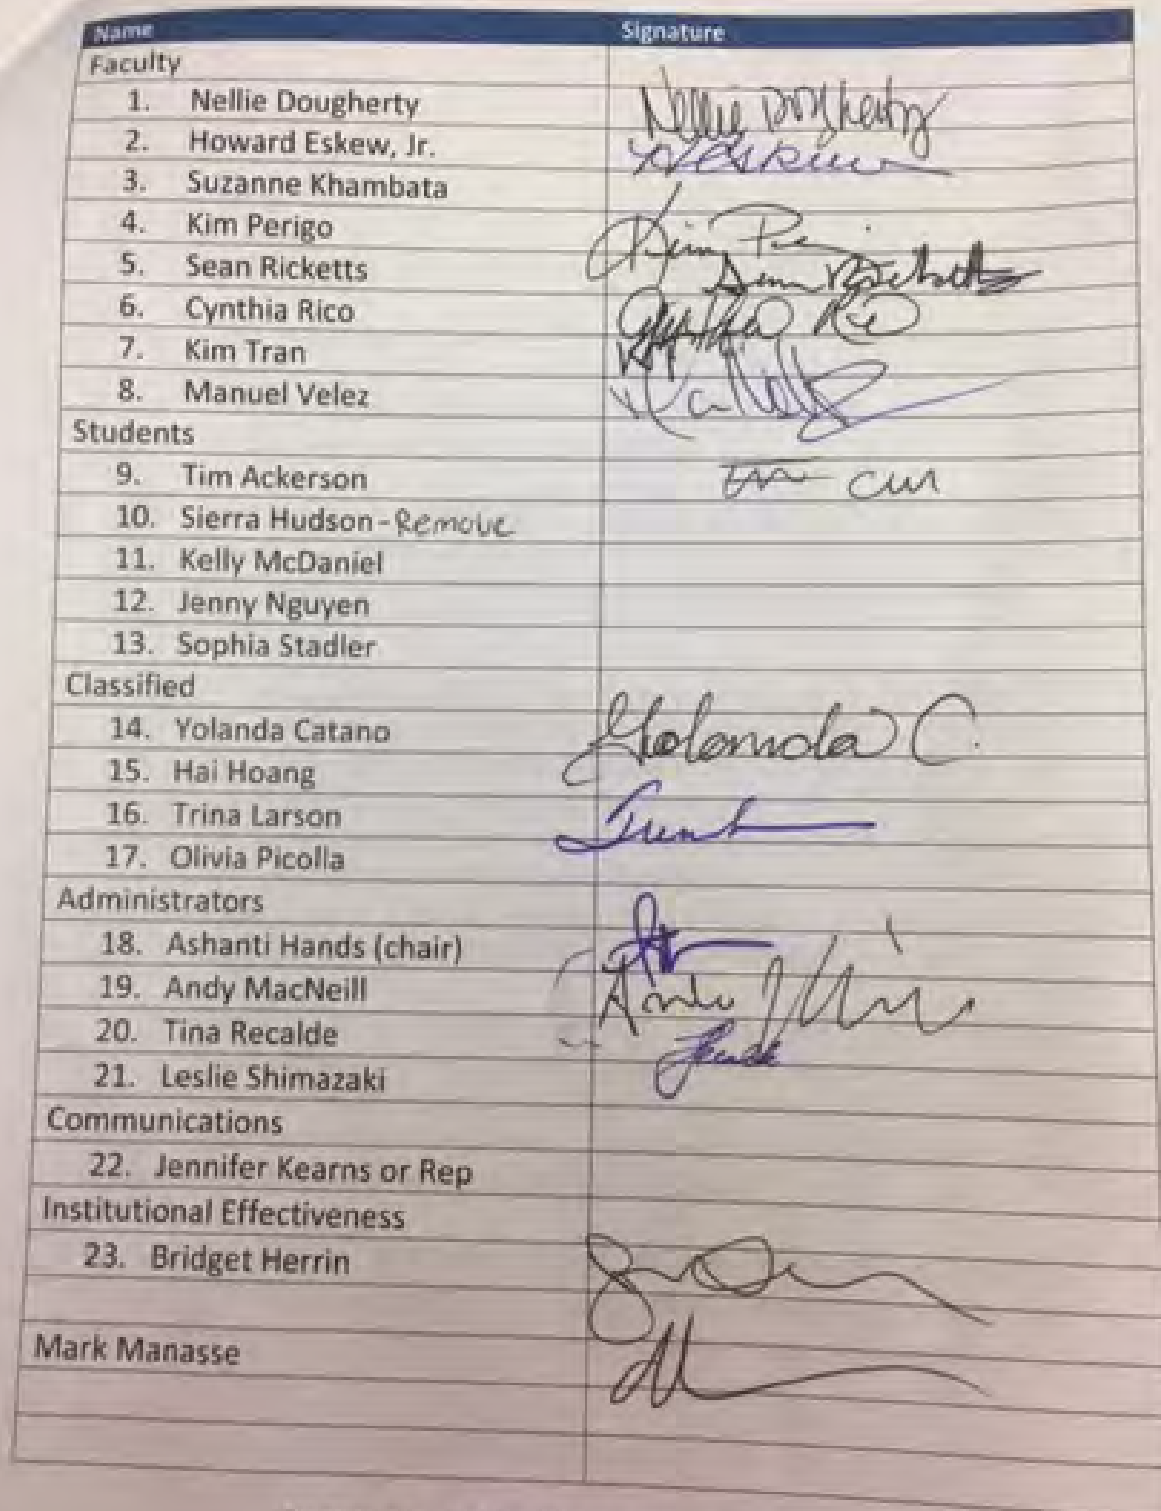 Name Signature
Faculty
1. Nellie Dougherty Nellie Dougherty
2. Howard Eskew, Jr. HEskew
3. Suzanne Khambata
4. Kim Perigo Kim
5. Sean Ricketts Sean Ricketts
6. Cynthia Rico Cynthia Rico
7. Kim Tran
8. Manuel Velez
Students
9. Tim Ackerson
10. Sierra Hudson - Remove
11. Kelly McDaniel
12. Jenny Nguyen
13. Sophia Stadler
Classified
14. Yolanda Catano Yolanda C.
15. Hai Hoang
16. Trina Larson
17. Olivia Picolla
Administrators
18. Ashanti Hands (chair)
19. Andy MacNeill
20. Tina Recalde
21. Leslie Shimazaki
Communications
22. Jennifer Kearns or Rep
Institutional Effectiveness
23. Bridget Herrin
Mark Manasse